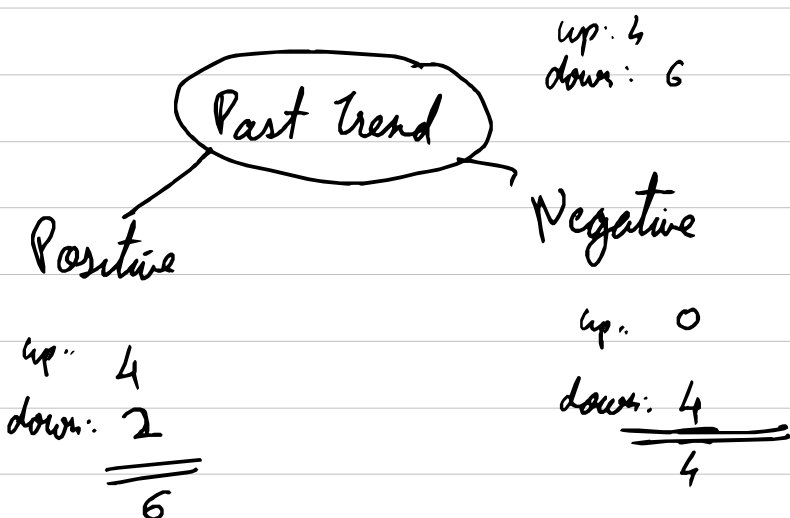 up: 4
down: 6
Past Trend
Positive
Negative
up: 4
down: 2
6
up: 0
down: 4
4